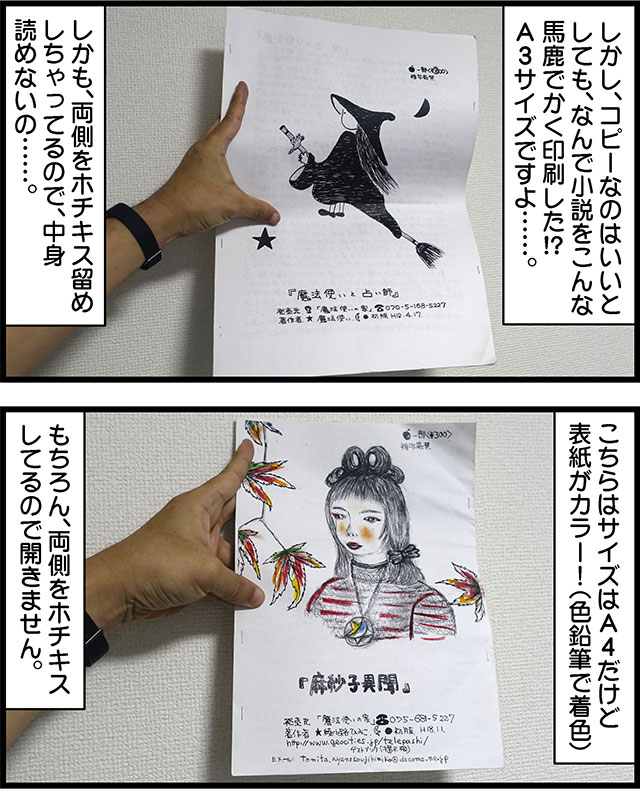 しかし、コピーなのはいいと
しても、なんで小説をこんな
馬鹿でかく印刷した!?
A3サイズですよ……。
しかも、両側をホチキス留め
しちゃってるので、中身
読めないの……。
一部〈¥300〉
『魔法使いと占い師』
発売元 「魔法使いの家」☎070-5-168-5227
著作者 ★ 魔法使い ●初版 H12.4.17.
こちらはサイズはA4だけど
表紙がカラー!(色鉛筆で着色)
もちろん、両側をホチキス
してるので開きません。
一部〈¥300〉
『麻紗子異聞』
発売元 「魔法使いの家」☎075-681-5227
著作者 ●初版 H18.11.
http://www.geocities.jp/telepashi/
Eメール tomita,ayanokoujihimiko@docomo.ne.jp